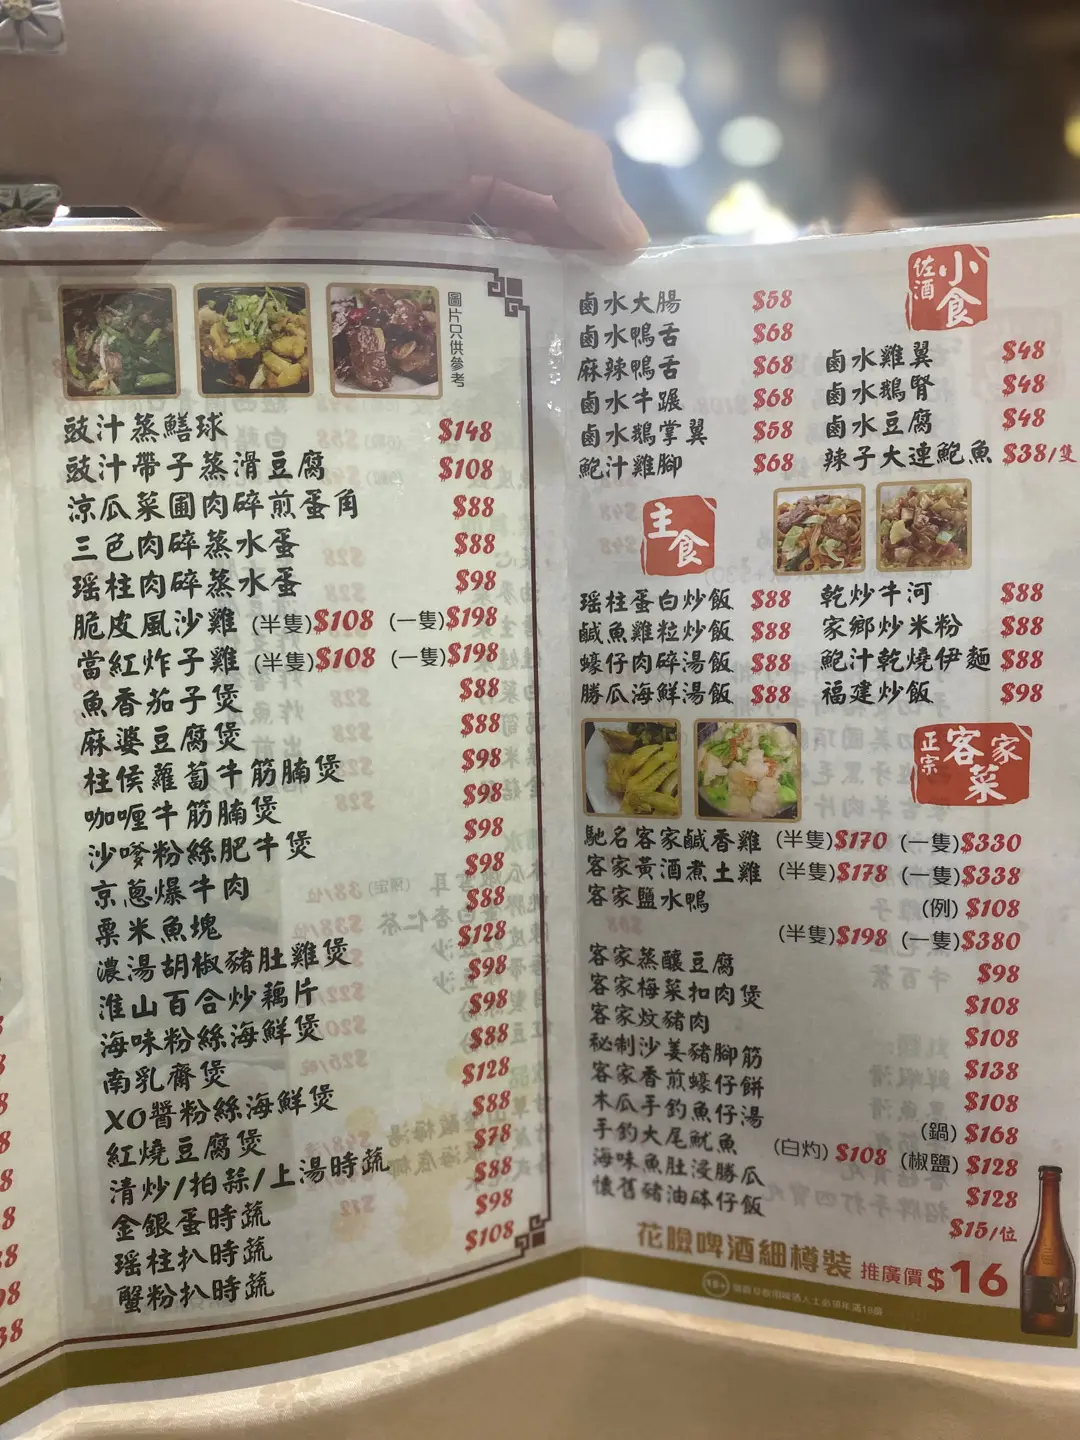 圖片只供參考
豉汁蒸鱔球 $148
豉汁帶子蒸滑豆腐 $108
涼瓜菜圃肉碎煎蛋角 $88
三色肉碎蒸水蛋 $88
瑤柱肉碎蒸水蛋 $98
脆皮風沙雞 (半隻)$108 (一隻)$198
當紅炸子雞 (半隻)$108 (一隻)$198
魚香茄子煲 $88
麻婆豆腐煲 $88
柱侯蘿蔔牛筋腩煲 $98
咖喱牛筋腩煲 $98
沙嗲粉絲肥牛煲 $98
京蔥爆牛肉 $98
粟米魚塊 $88
濃湯胡椒豬肚雞煲 $128
淮山百合炒藕片 $98
海味粉絲海鮮煲 $98
南乳齋煲 $88
XO醬粉絲海鮮煲 $128
紅燒豆腐煲 $88
清炒/拍蒜/上湯時蔬 $78
金銀蛋時蔬 $88
瑤柱扒時蔬 $98
蟹粉扒時蔬 $108
佐酒小食
鹵水大腸 $58
鹵水鴨舌 $68
麻辣鴨舌 $68
鹵水牛𨂾 $68
鹵水鵝掌翼 $58
鮑汁雞腳 $68
鹵水雞翼 $48
鹵水鵝腎 $48
鹵水豆腐 $48
辣子大連鮑魚 $38/隻
主食
瑤柱蛋白炒飯 $88
鹹魚雞粒炒飯 $88
蠔仔肉碎湯飯 $88
勝瓜海鮮湯飯 $88
乾炒牛河 $88
家鄉炒米粉 $88
鮑汁乾燒伊麵 $88
福建炒飯 $98
正宗客家菜
馳名客家鹹香雞 (半隻)$170 (一隻)$330
客家黃酒煮土雞 (半隻)$178 (一隻)$338
客家鹽水鴨 (例)$108
(半隻)$198 (一隻)$380
客家蒸釀豆腐 $98
客家梅菜扣肉煲 $108
客家炆豬肉 $108
秘制沙姜豬腳筋 $138
客家香煎蠔仔餅 $108
木瓜手釣魚仔湯 (鍋)$168
手釣大尾魷魚 (白灼)$108 (椒鹽)$128
海味魚肚浸勝瓜 $128
懷舊豬油砵仔飯 $15/位
花臉啤酒細樽裝 推廣價$16
18+